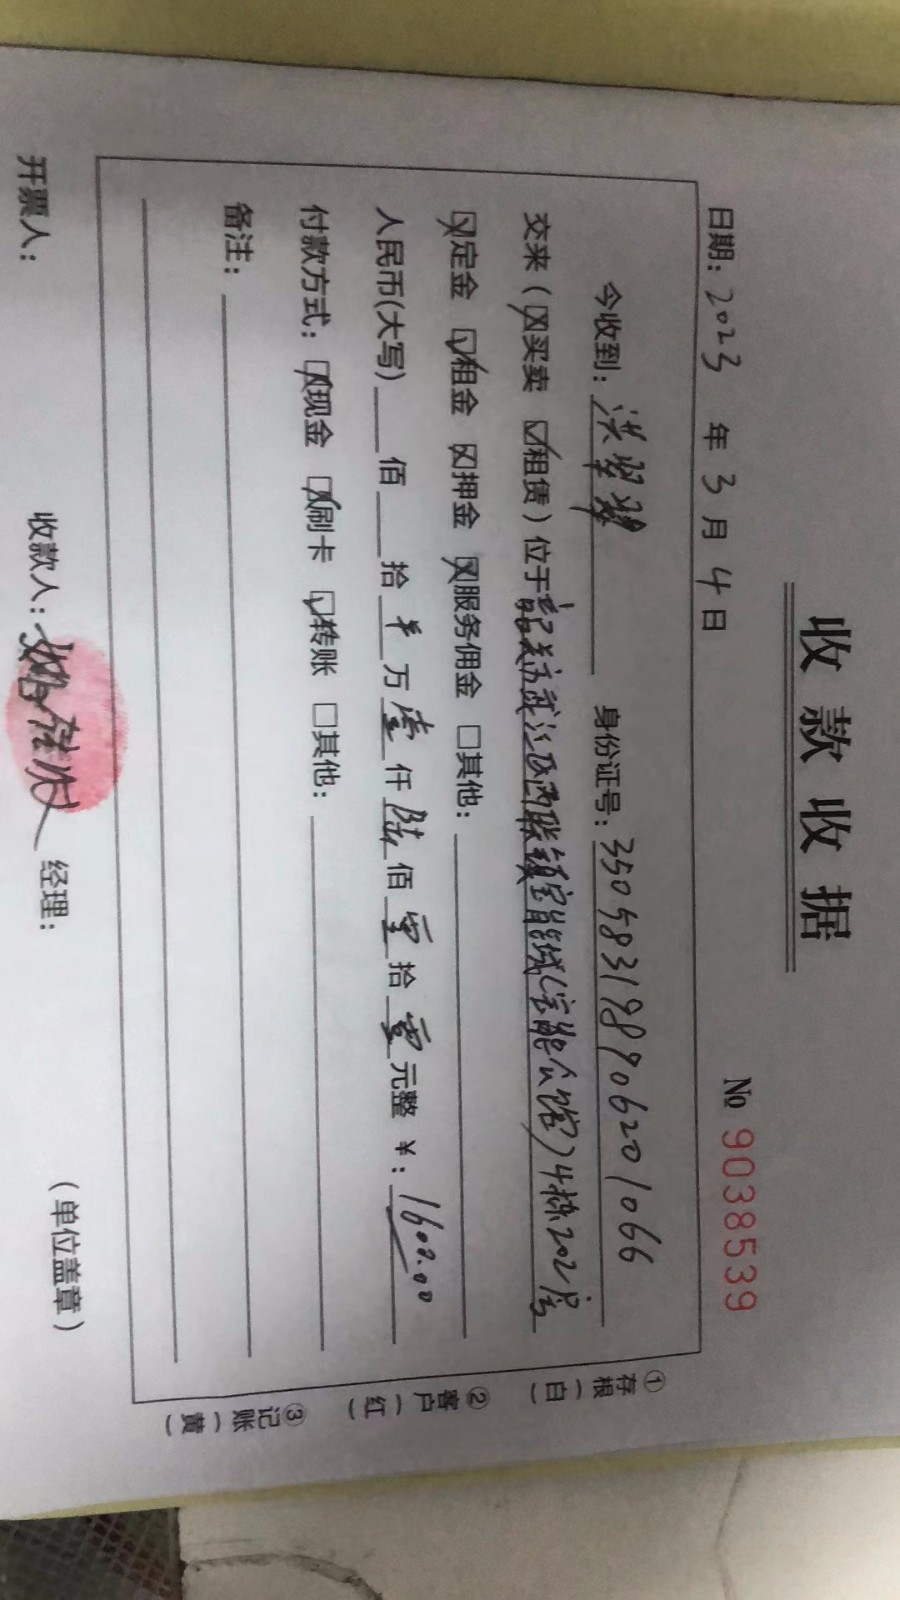 收款收据
№ 9038539
日期: 2023 年 3 月 4 日
今收到: 洪翠 身份证号: 350583198906201066
交来（☒买卖 ☑租赁）位于韶关市武江区西联镇宝能城(宝能公馆)4栋202房
☒定金 ☑租金 ☒押金 ☒服务佣金 ☐其他:
人民币(大写) 佰 拾 万 壹 仟 陆 佰 零 拾 零 元整 ¥: 1600.00
付款方式: ☒现金 ☒刷卡 ☑转账 ☐其他:
备注:
开票人: 收款人: 经理: (单位盖章)
①存根（白）
②客户（红）
③记账（黄）